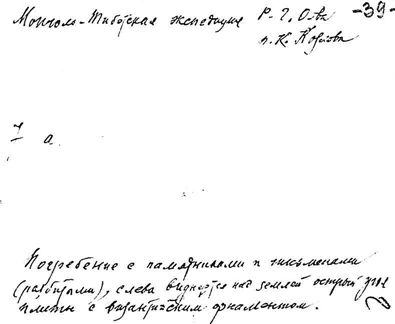 Монголо-Тибетская экспедиция Р. Г. О-ва -39-
п. К. Козлова
I а.
Погребение с памятниками и письменами
(разбитыми), слева виднеется над землей острый угол
плиты с византийским орнаментом.